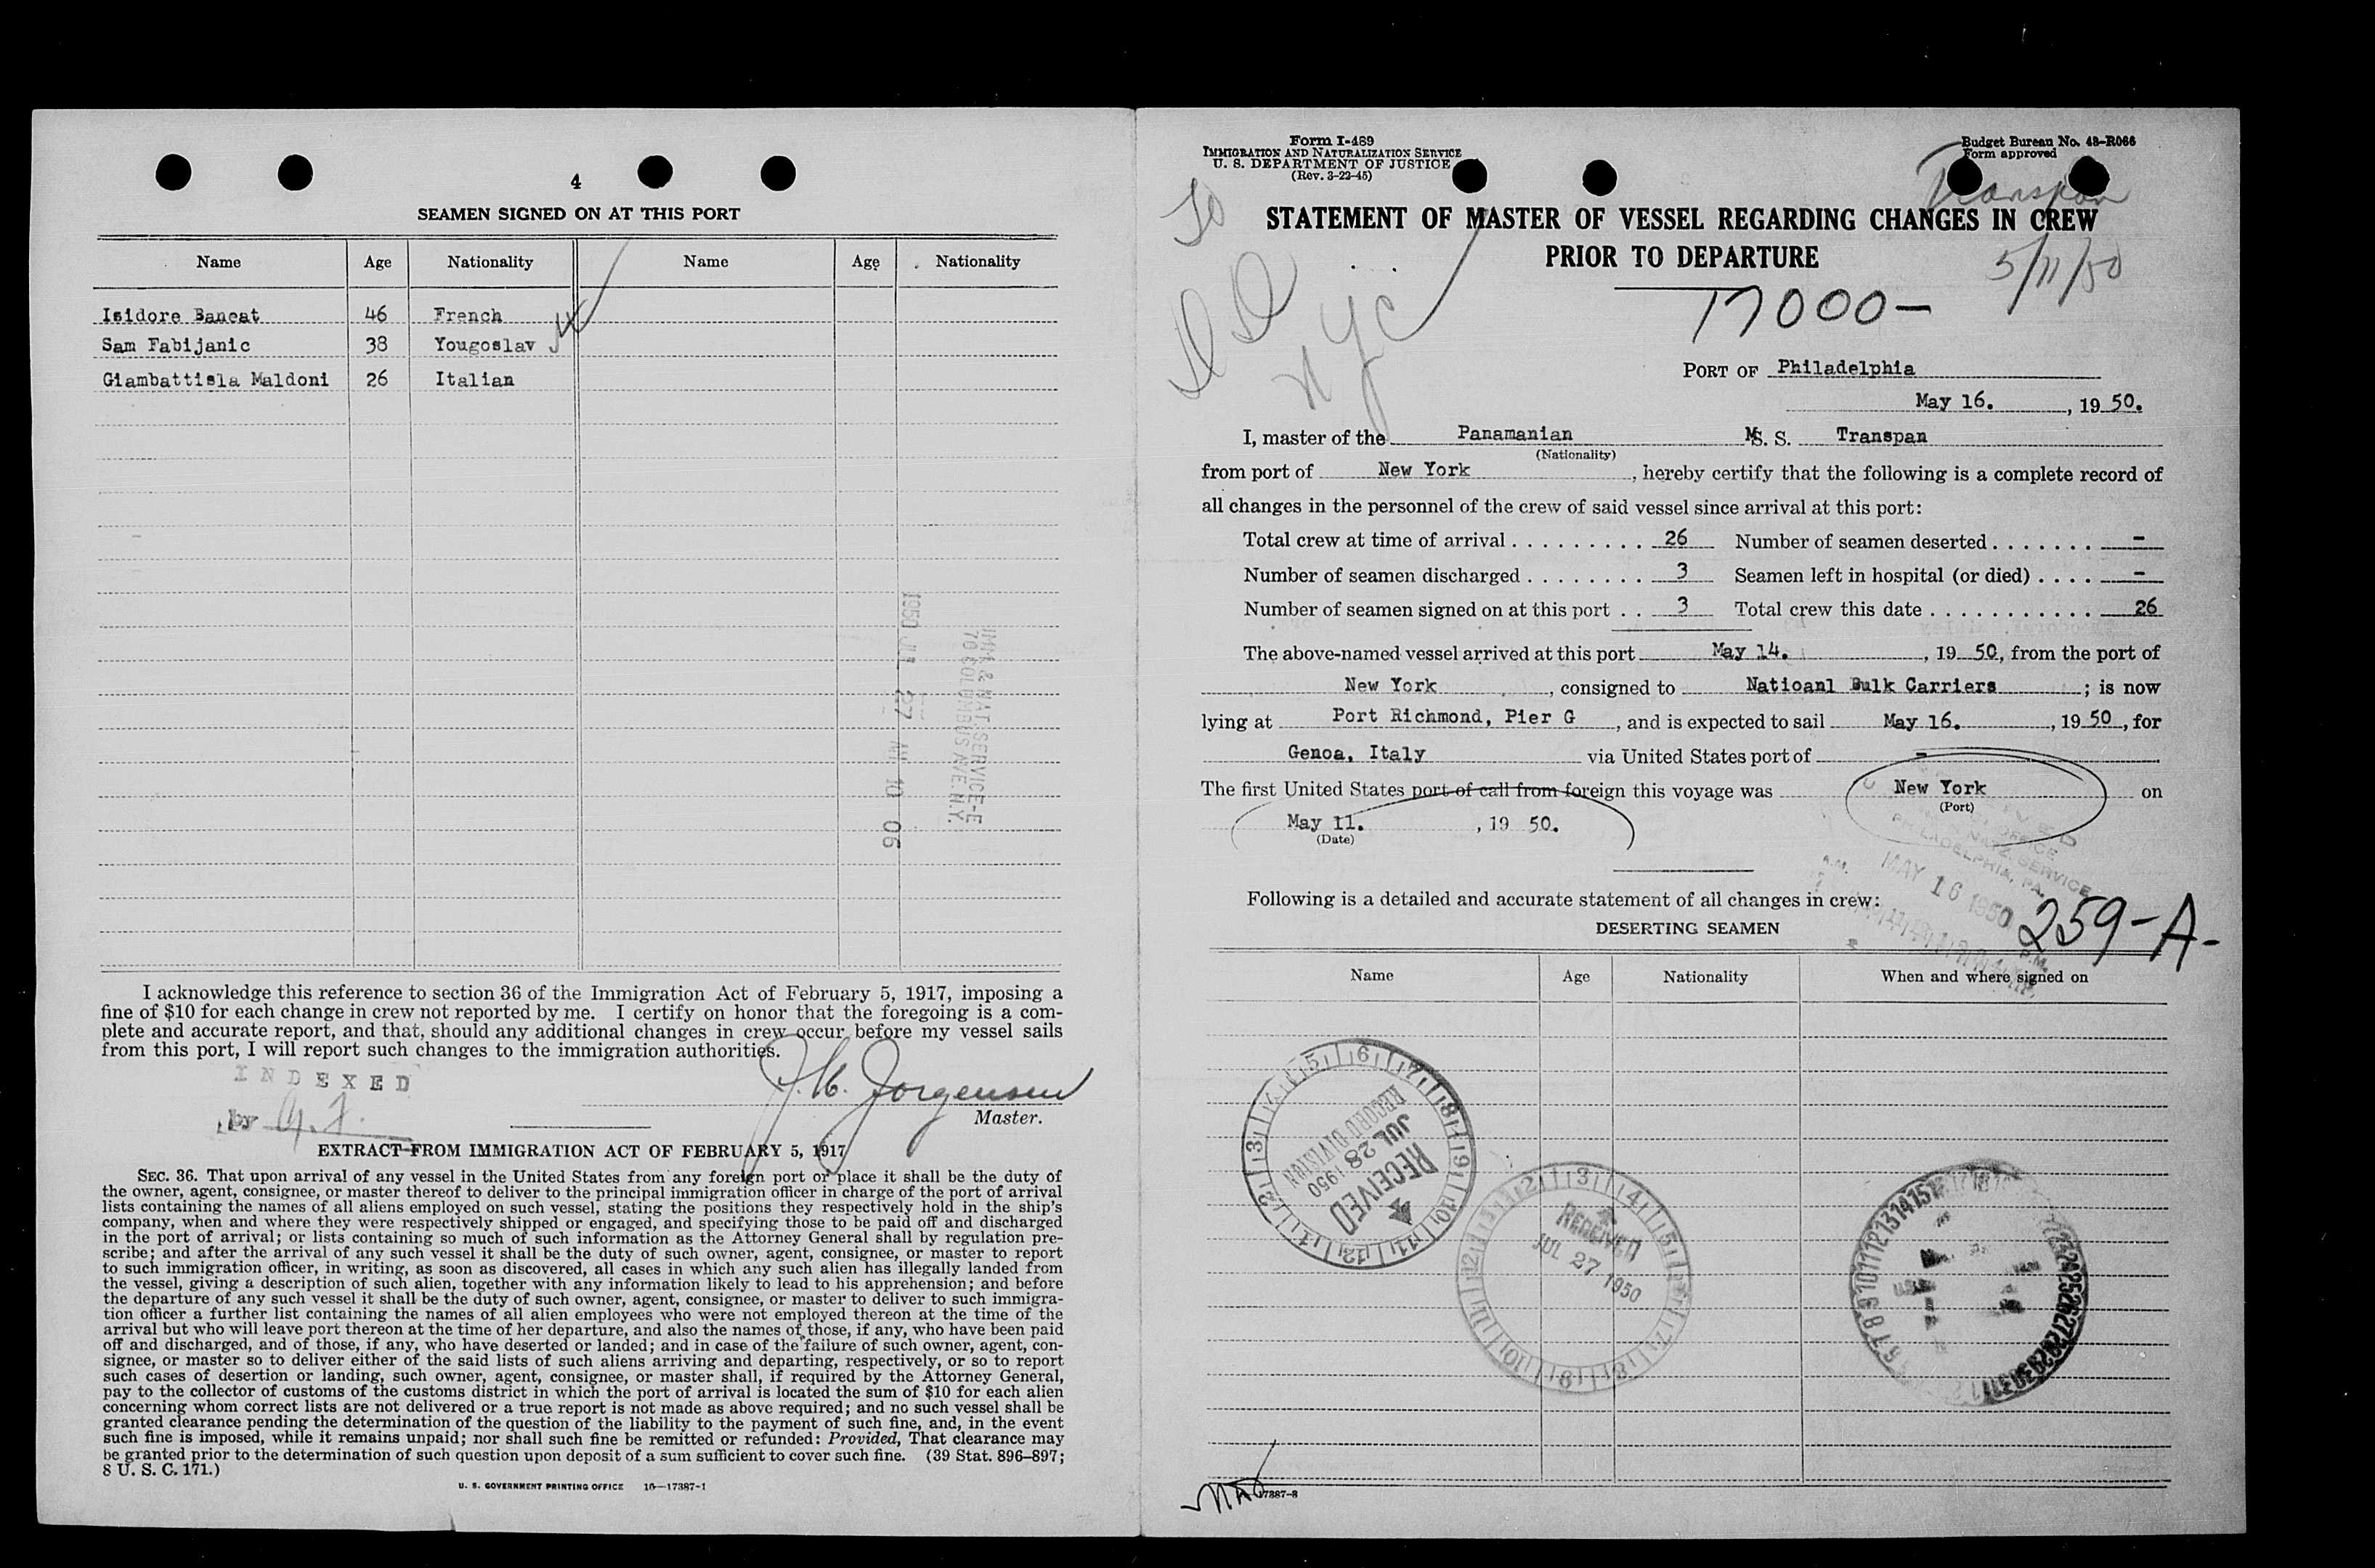 4
SEAMEN SIGNED ON AT THIS PORT
Name Age Nationality Name Age Nationality
Isidore Bancat 46 French
Sam Fabijanic 38 Yougoslav
Giambattisla Maldoni 26 Italian
1950 JUL 27 AM 10 06
IMM. & NAT. SERVICE-E
70 COLUMBUS AVE. N.Y.
I acknowledge this reference to section 36 of the Immigration Act of February 5, 1917, imposing a
fine of $10 for each change in crew not reported by me. I certify on honor that the foregoing is a com-
plete and accurate report, and that, should any additional changes in crew occur before my vessel sails
from this port, I will report such changes to the immigration authorities.
INDEXED
by
J. H. Jorgensen
Master.
EXTRACT FROM IMMIGRATION ACT OF FEBRUARY 5, 1917
SEC. 36. That upon arrival of any vessel in the United States from any foreign port or place it shall be the duty of
the owner, agent, consignee, or master thereof to deliver to the principal immigration officer in charge of the port of arrival
lists containing the names of all aliens employed on such vessel, stating the positions they respectively hold in the ship's
company, when and where they were respectively shipped or engaged, and specifying those to be paid off and discharged
in the port of arrival; or lists containing so much of such information as the Attorney General shall by regulation pre-
scribe; and after the arrival of any such vessel it shall be the duty of such owner, agent, consignee, or master to report
to such immigration officer, in writing, as soon as discovered, all cases in which any such alien has illegally landed from
the vessel, giving a description of such alien, together with any information likely to lead to his apprehension; and before
the departure of any such vessel it shall be the duty of such owner, agent, consignee, or master to deliver to such immigra-
tion officer a further list containing the names of all alien employees who were not employed thereon at the time of the
arrival but who will leave port thereon at the time of her departure, and also the names of those, if any, who have been paid
off and discharged, and of those, if any, who have deserted or landed; and in case of the failure of such owner, agent, con-
signee, or master so to deliver either of the said lists of such aliens arriving and departing, respectively, or so to report
such cases of desertion or landing, such owner, agent, consignee, or master shall, if required by the Attorney General,
pay to the collector of customs of the customs district in which the port of arrival is located the sum of $10 for each alien
concerning whom correct lists are not delivered or a true report is not made as above required; and no such vessel shall be
granted clearance pending the determination of the question of the liability to the payment of such fine, and, in the event
such fine is imposed, while it remains unpaid; nor shall such fine be remitted or refunded: Provided, That clearance may
be granted prior to the determination of such question upon deposit of a sum sufficient to cover such fine. (39 Stat. 896–897;
8 U. S. C. 171.)
U. S. GOVERNMENT PRINTING OFFICE 16—17387-1
Form I-489
IMMIGRATION AND NATURALIZATION SERVICE
U. S. DEPARTMENT OF JUSTICE
(Rev. 3-22-45)
Budget Bureau No. 43-R066
Form approved
Transpan
5/11/50
To
NYC
STATEMENT OF MASTER OF VESSEL REGARDING CHANGES IN CREW
PRIOR TO DEPARTURE
17000-
PORT OF Philadelphia
May 16. , 19 50.
I, master of the Panamanian M S. S. Transpan
(Nationality)
from port of New York , hereby certify that the following is a complete record of
all changes in the personnel of the crew of said vessel since arrival at this port:
Total crew at time of arrival . . . . . . . . . . 26 Number of seamen deserted . . . . . . . -
Number of seamen discharged . . . . . . . . 3 Seamen left in hospital (or died) . . . . -
Number of seamen signed on at this port . . 3 Total crew this date . . . . . . . . . . . 26
The above-named vessel arrived at this port May 14. , 19 50, from the port of
New York , consigned to Natioanl Bulk Carriers ; is now
lying at Port Richmond, Pier G , and is expected to sail May 16. , 19 50 , for
Genoa, Italy via United States port of -
The first United States port of call from foreign this voyage was New York on
(Port)
May 11. , 19 50.
(Date)
MAY 16 1950
PHILADELPHIA, PA.
259-A-
Following is a detailed and accurate statement of all changes in crew:
DESERTING SEAMEN
Name Age Nationality When and where signed on
RECEIVED
JUL 28 1950
RECORD DIVISION
RECEIVED
JUL 27 1950
17387-3